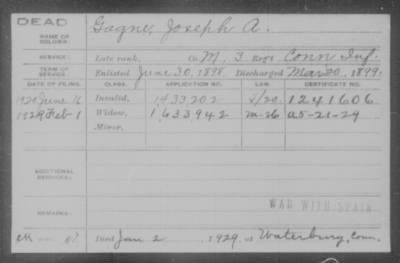 DEAD
NAME OF SOLDIER: Gagne, Joseph A.
SERVICE: Late rank, Co. M, 3 Reg't Conn Inf.
TERM OF SERVICE: Enlisted June 30, 1898, Discharged Mar 20, 1899.
DATE OF FILING. CLASS. APPLICATION NO. LAW. CERTIFICATE NO.
1920 June 16 Invalid, 1,433,202 1241606
1929 Feb 1 Widow, 1,633,942 m-26 a5-21-29
Minor,
ADDITIONAL SERVICES:
WAR WITH SPAIN
REMARKS:
Died Jan 2, 1929, at Waterbury, Conn.